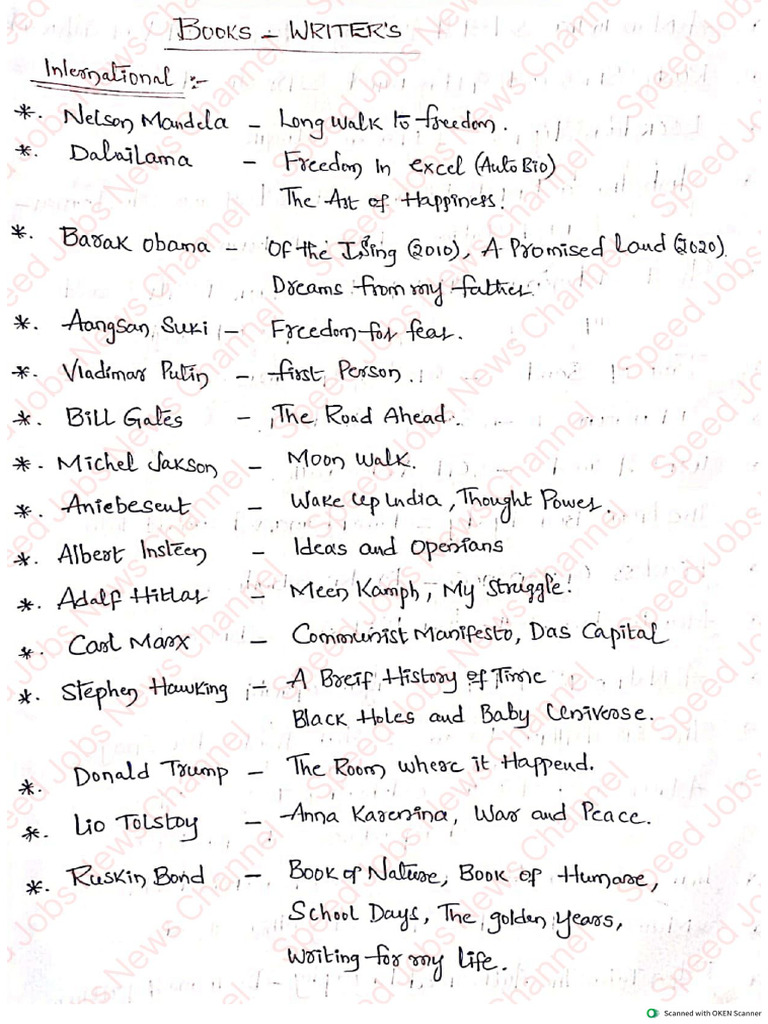 BOOKS - WRITER'S
International :-
*. Nelson Mandela - Long walk to freedom.
*. Dalailama - Freedom In excel (Auto Bio)
The Art of Happiness!
*. Barak obama - Of the I, Sing (2010), A Promised Land (2020).
Dreams from my father.
*. Aangsan Suki - Freedom for fear.
*. Vladimar Putin - first Person.
*. Bill Gates - The Road Ahead.
*. Michel Jakson - Moon walk.
*. Aniebesent - Wake up India, Thought Power.
*. Albert Insteen - Ideas and openians
*. Adalf Hitlar - Meen Kamph, My Struggle!
*. Carl Marx - Communist Manifesto, Das Capital
*. Stephen Hawking - A Breif History of Time
Black Holes and Baby Universe.
*. Donald Trump - The Room where it Happend.
*. Lio Tolstoy - Anna Karenina, War and Peace.
*. Ruskin Bond - Book of Nature, Book of Humare,
School Days, The golden years,
writing for my life.
Speed Jobs News Channel
Scanned with OKEN Scanner